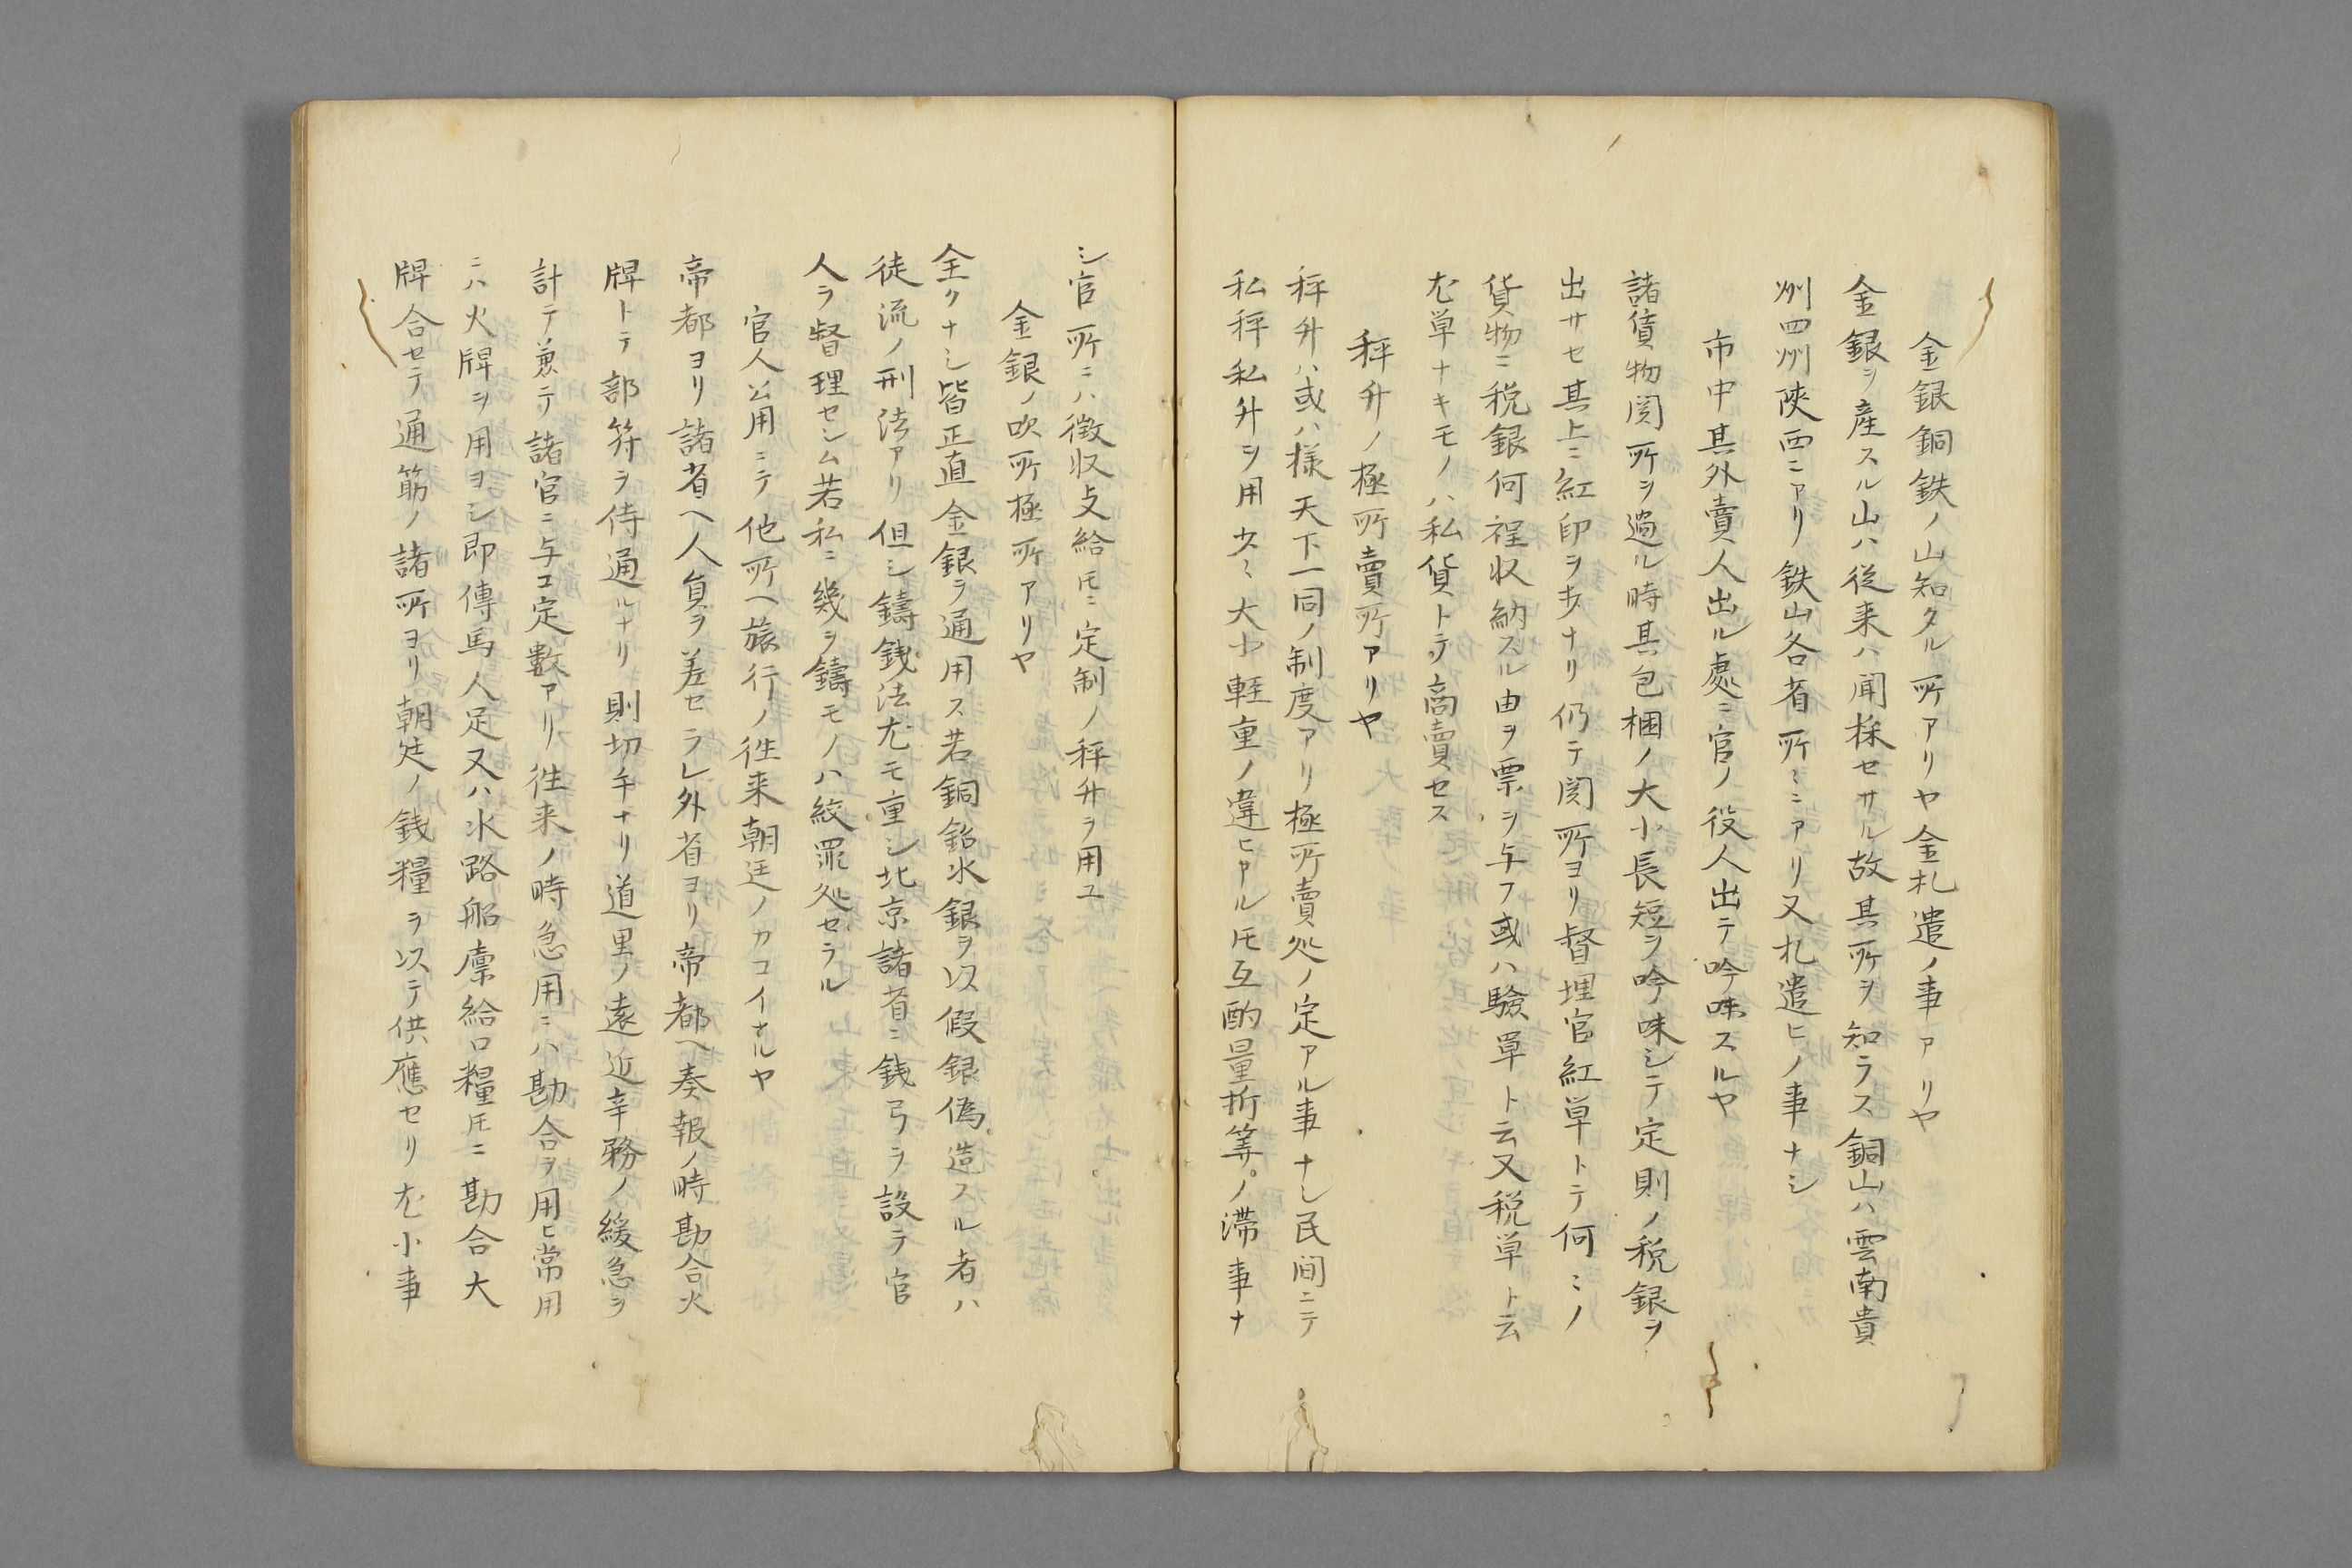 金銀銅鉄ノ山知タル所アリヤ金札遣ノ事アリヤ
金銀ヲ産スル山ハ従来ハ開採セサル故其所ヲ知ラス銅山ハ雲南貴
州四州陜西ニアリ鉄山各省所ミニアリ又札遣ヒノ事ナシ
市中其外賣人出ル處ニ官ノ役人出テ吟味スルヤ
諸貨物関所ヲ過ル時其包梱ノ大小長短ヲ吟味シテ定則ノ税銀ヲ
出サセ其上ニ紅印ヲ出ナリ仍テ関所ヨリ督理官紅単トテ何ミノ
貨物ニ税銀何程収納スル由ヲ票ヲ与フ或ハ験單ト云又税単ト云
尤単ナキモノハ私貨トテ商賣セス
秤升ノ極所賣所アリヤ
秤升ハ或ハ様天下一同ノ制度アリ極所賣処ノ定アル事ナシ民间ニテ
私秤私升ヲ用少ミ大小軽重ノ違ヒアル圧互酌量折等ノ滞事ナ
シ官所ニハ徴収支給圧ニ定制ノ秤升ヲ用ユ
金銀ノ吹所極所アリヤ
全クナシ皆正直金銀ヲ通用ス若銅鉛水銀ヲ以假銀偽造スル者ハ
徒流ノ刑法アリ但シ鑄銭法尤モ重シ北京諸省ニ銭局ヲ設テ官
人ヲ督理セシム若私ニ幾ヲ鑄モノハ絞罪処セラル
官人公用ニテ他所ヘ旅行ノ徃来朝廷ノカコイナルヤ
帝都ヨリ諸省ヘ人負ヲ差セラレ外省ヨリ帝都ヘ奏報ノ時勘合火
牌トテ部符ヲ侍通ルナリ則切手ナリ道里ノ遠近辛務ノ緩急ヲ
計テ兼テ諸官ニ与エ定數アリ徃来ノ時急用ニハ勘合ヲ用ヒ常用
ニハ火牌ヲ用ヨシ即傳馬人足又ハ水路船廩給口糧圧ニ勘合大
牌合セテ通筋ノ諸所ヨリ朝廷ノ銭糧ヲ以テ供應セリ尤小事